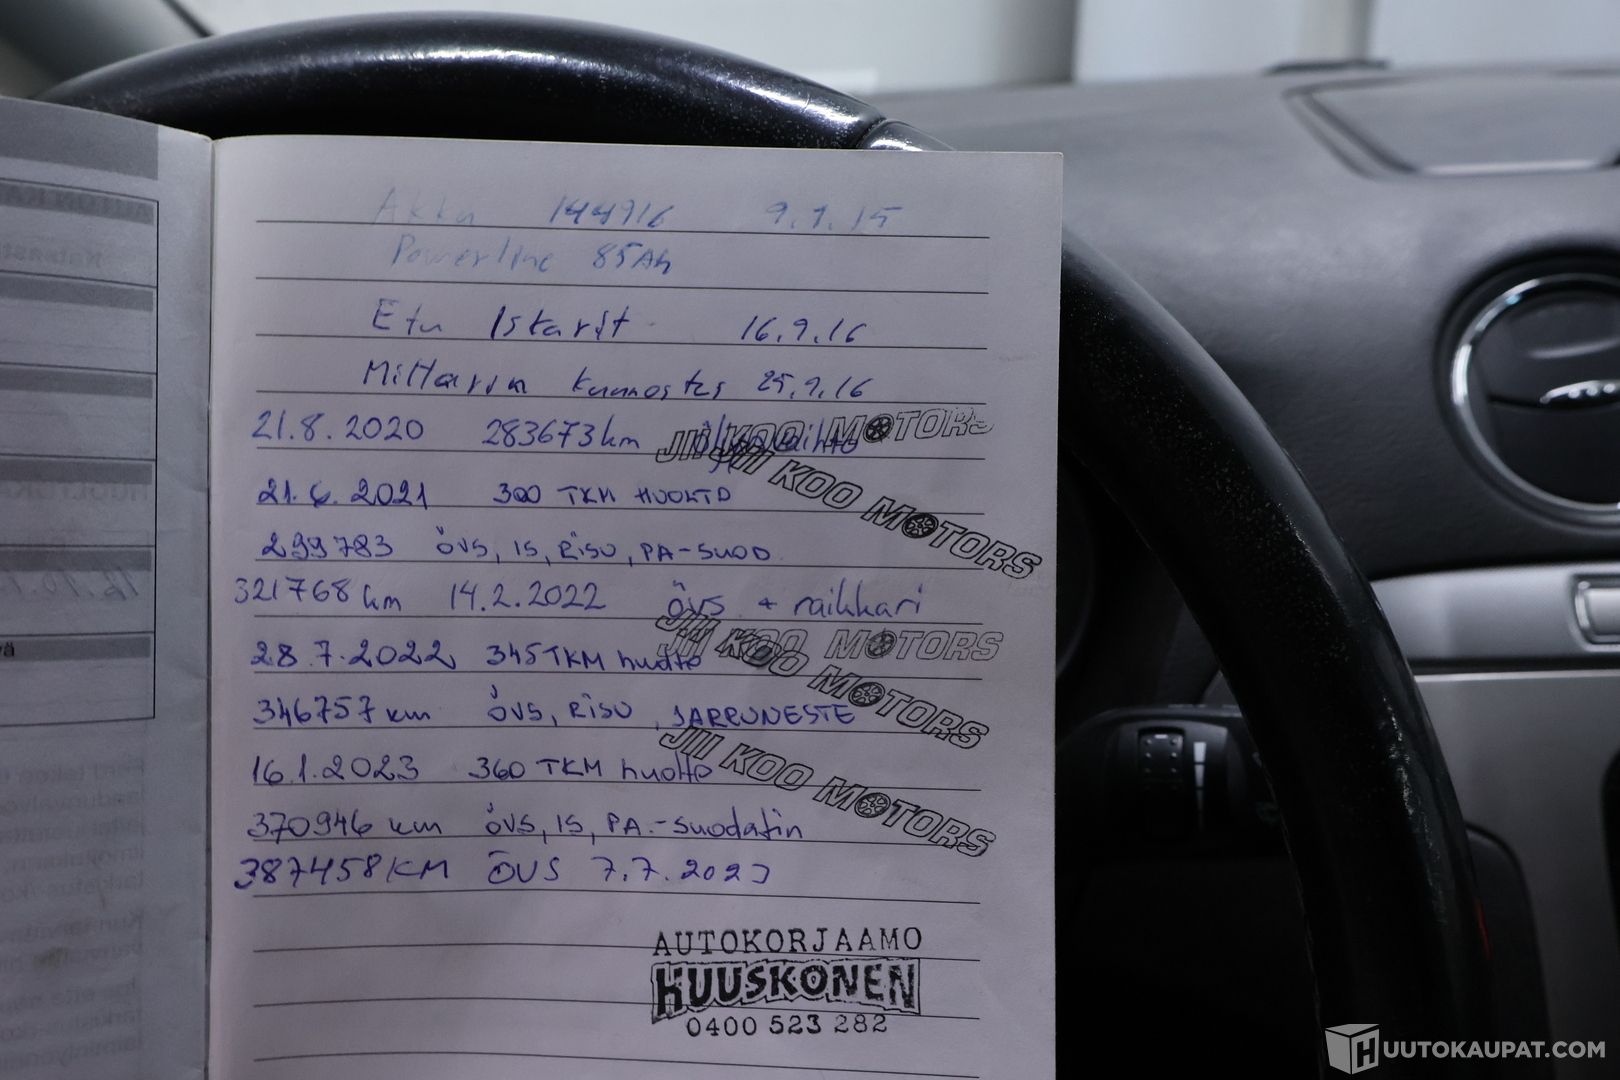 Akku 144916 9.9.15
Powerline 85Ah
Etu Iskarit 16.9.16
Mittarin kunnostus 25.9.16
21.8.2020 283673km Öljynvaihto
JII KOO MOTORS
JII KOO MOTORS
21.6.2021 300 TKM HUOLTO
299783 ÖVS, IS, RISU, PA-SUOD.
321768 km 14.2.2022 ÖVS + raikkari
JII KOO MOTORS
28.7.2022 345 TKM huolto
JII KOO MOTORS
346757 km ÖVS, RISU, JARRUNESTE
16.1.2023 360 TKM huolto
JII KOO MOTORS
370946 km ÖVS, IS, PA.-suodatin
387458 KM ÖVS 7.7.2023
AUTOKORJAAMO
HUUSKONEN
0400 523 282
HUUTOKAUPAT.COM